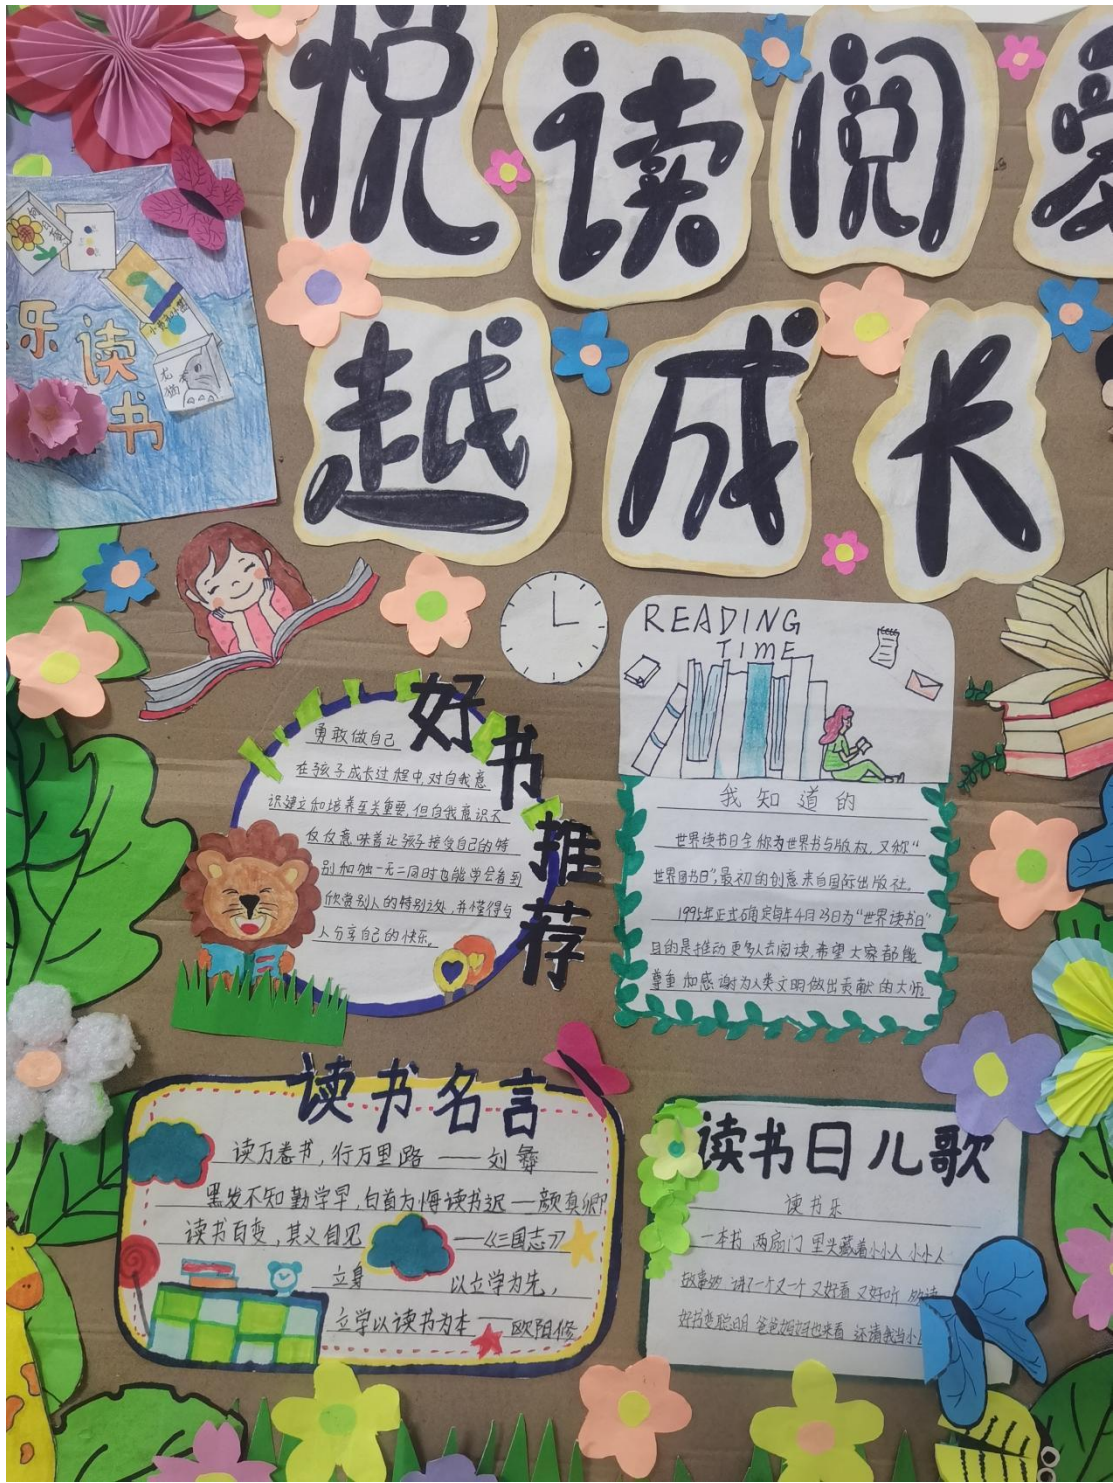 悦读阅爱
越成长
乐读书
龙猫
READING
TIME
好书推荐
勇敢做自己
在孩子成长过程中,对自我意
识建立和培养至关重要,但自我意识不
仅仅意味着让孩子接受自己的特
别和独一无二同时也能学会看到
欣赏别人的特别之处,并懂得与
人分享自己的快乐。
我知道的
世界读书日全称为世界书与版权,又称“
世界图书日”,最初的创意来自国际出版社。
1995年正式确定每年4月23日为“世界读书日”
目的是推动更多人去阅读,希望大家都能
尊重和感谢为人类文明做出贡献的大师
读书名言
读万卷书,行万里路——刘彝
黑发不知勤学早,白首方悔读书迟—颜真卿
读书百变,其义自见——《三国志》
立身以立学为先,
立学以读书为本——欧阳修
读书日儿歌
读书乐
一本书 两扇门 里头藏着小小人 小小人
故事的 讲了一个又一个 又好看 又好听
好书变聪明 爸爸妈妈也来看 还请我当小